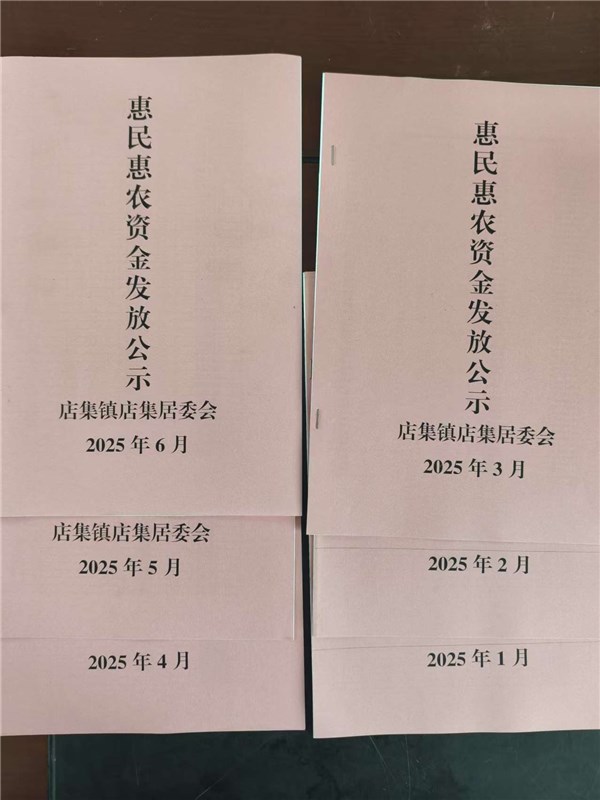 惠民惠农资金发放公示
店集镇店集居委会
2025 年 6 月
店集镇店集居委会
2025 年 5 月
2025 年 4 月
惠民惠农资金发放公示
店集镇店集居委会
2025 年 3 月
2025 年 2 月
2025 年 1 月